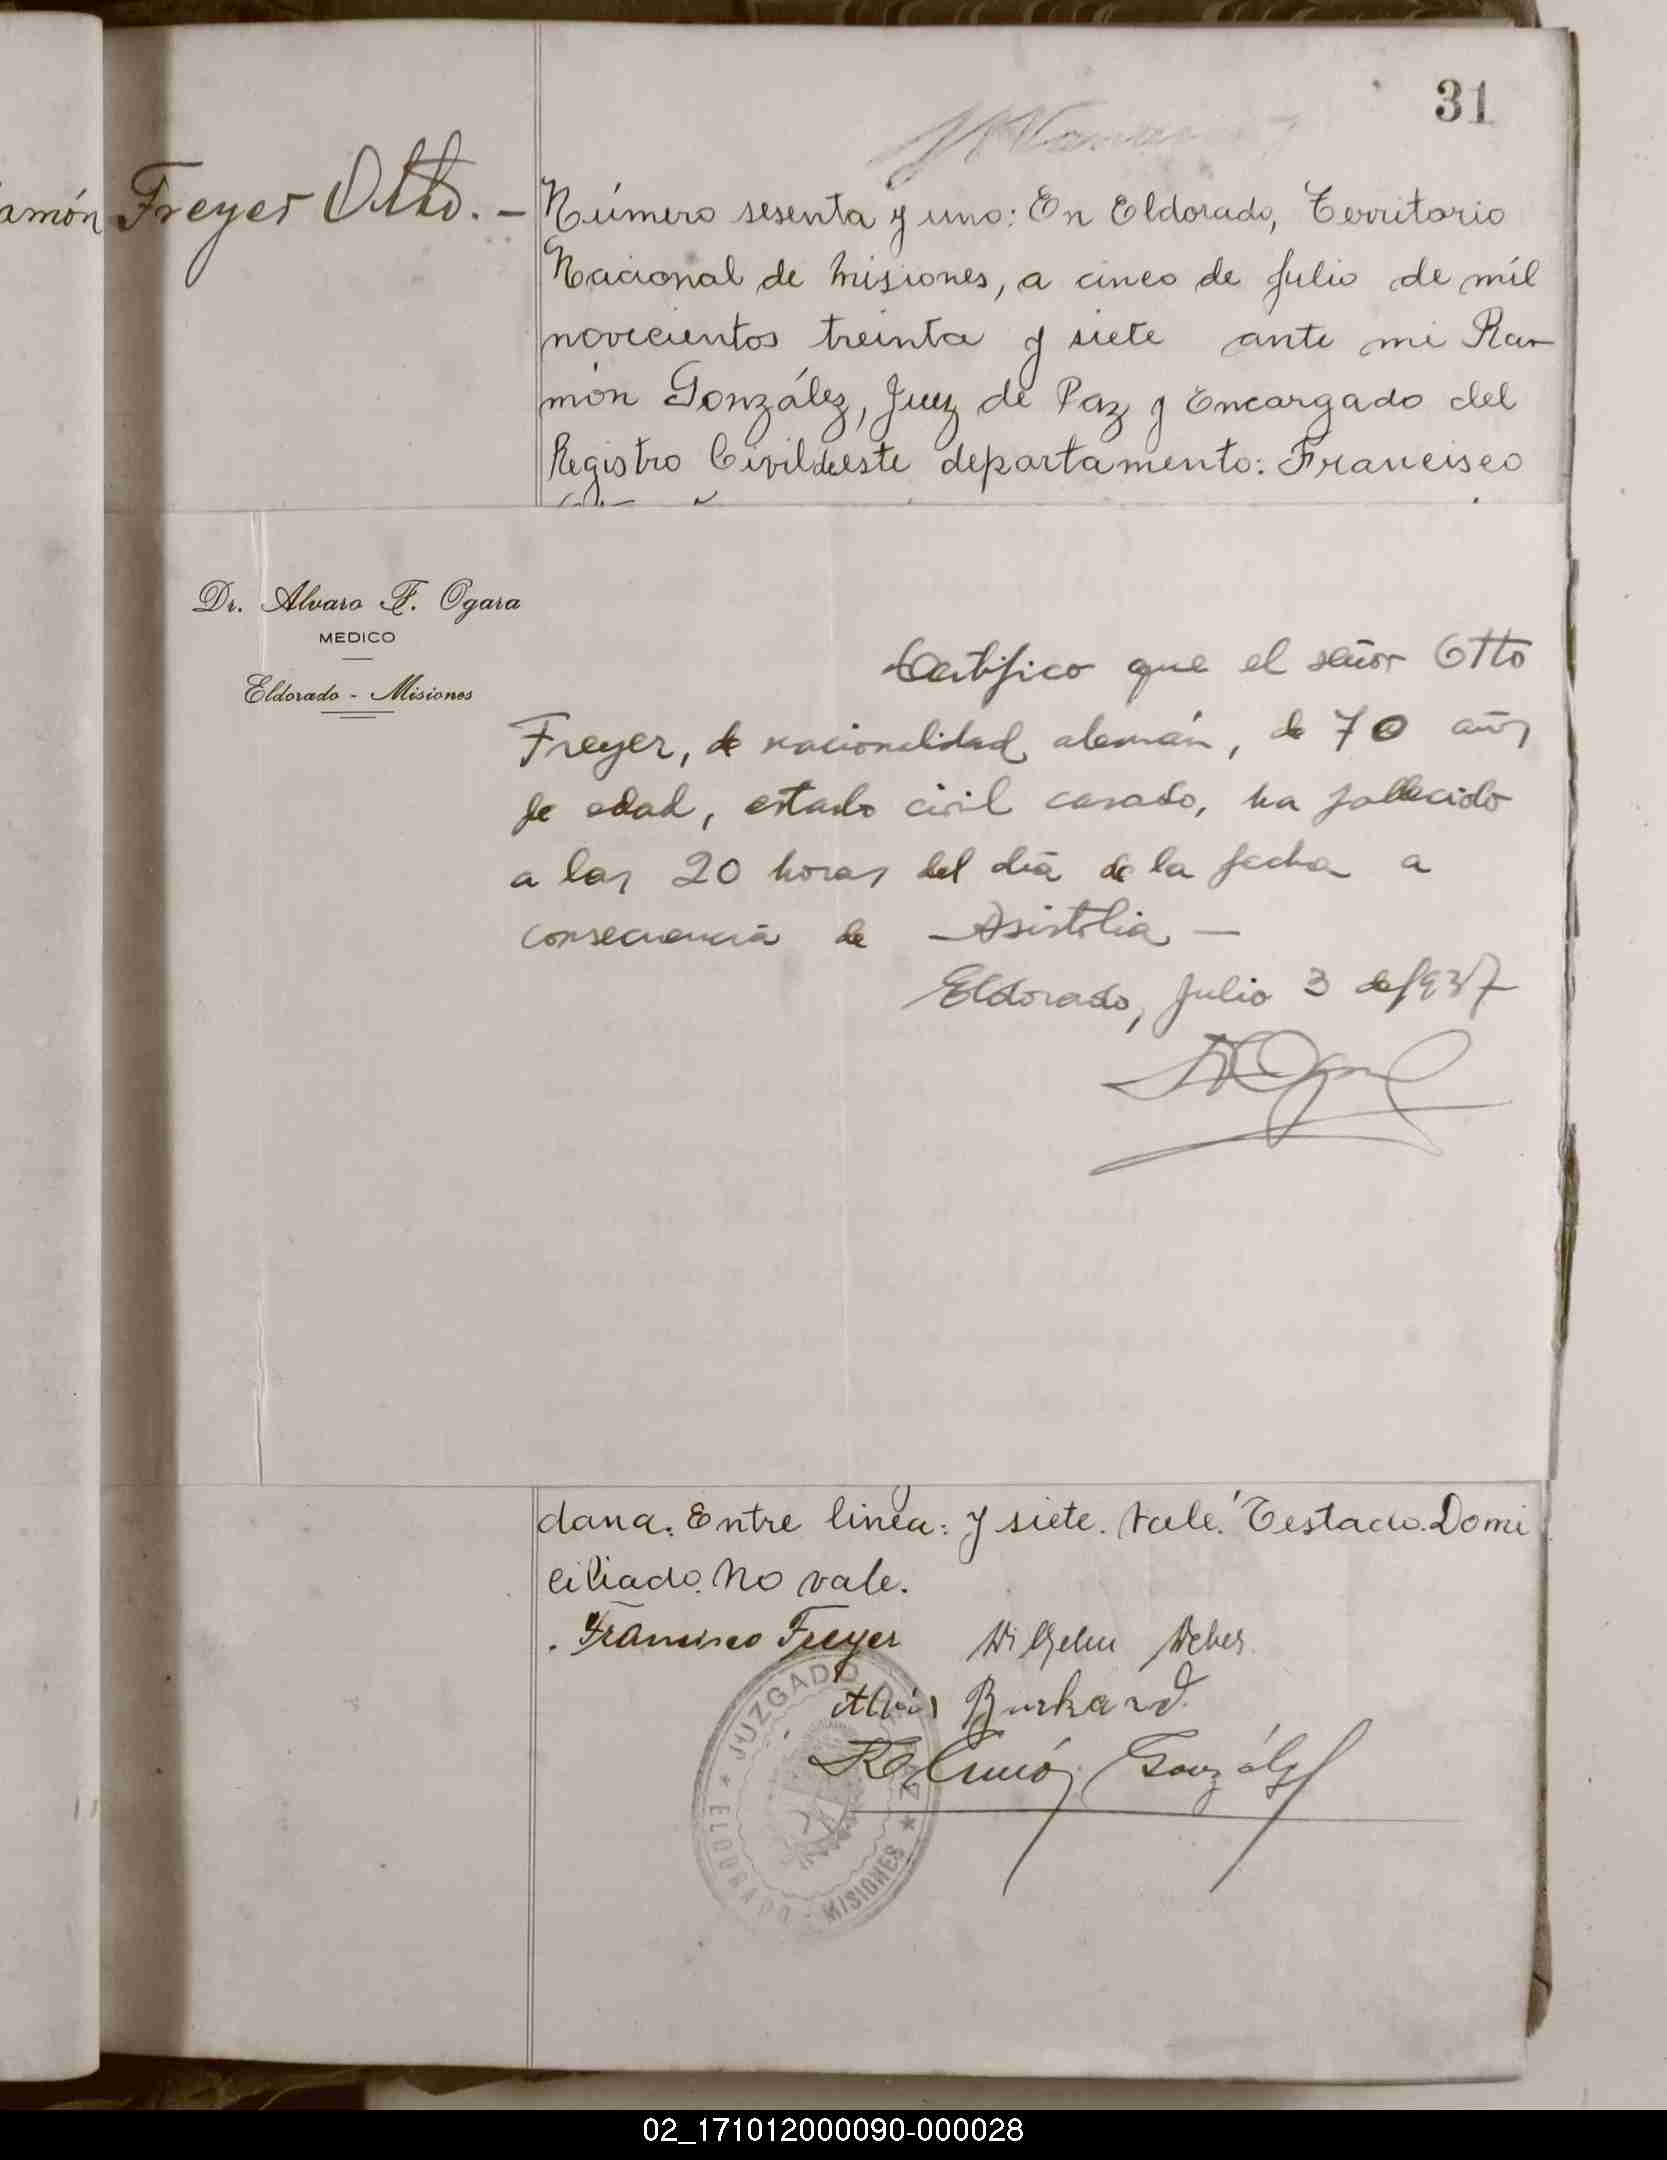 31
amón
Freyer Otto. -
Número sesenta y uno: En Eldorado, Territorio
Nacional de Misiones, a cinco de Julio de mil
novecientos treinta y siete ante mi Ra-
món González, Juez de Paz y Encargado del
Registro Civil de este departamento: Francisco
Dr. Alvaro F. Ogara
MEDICO
Eldorado - Misiones
Certifico que el señor Otto
Freyer, de nacionalidad alemán, de 70 años
de edad, estado civil casado, ha fallecido
a las 20 horas del día de la fecha a
consecuencia de Asistolia —
Eldorado, Julio 3 de 1937
dana. Entre linea: y siete. Vale. Testado. Domi
ciliado. No vale.
Francisco Freyer Wilhelm Weber
Alois Burkard
Ramón González
JUZGADO DE PAZ * MISIONES - ELDORADO *
02_171012000090-000028